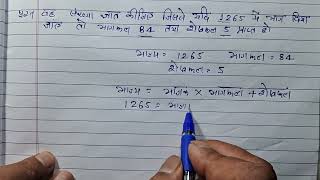 प्रश्न वह संख्या ज्ञात कीजिए जिससे यदि 1265 में भाग दिया
जाए तो भागफल 84 तथा शेषफल 5 प्राप्त हो
भाज्य = 1265 भागफल = 84
शेषफल = 5
भाज्य = भाजक × भागफल + शेषफल
1265 = भाज